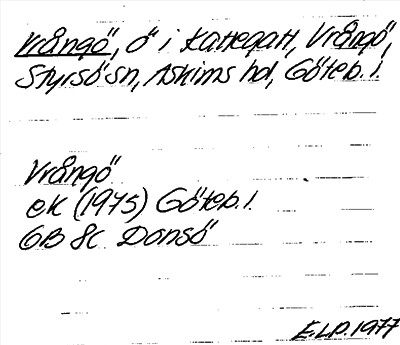 Vrångö, ö i Kattegatt, Vrångö,
Styrsö sn, Askims hd, Göteb. l.
Vrångö
ek (1975) Göteb. l.
6B 8c Donsö
E.L.P. 1977